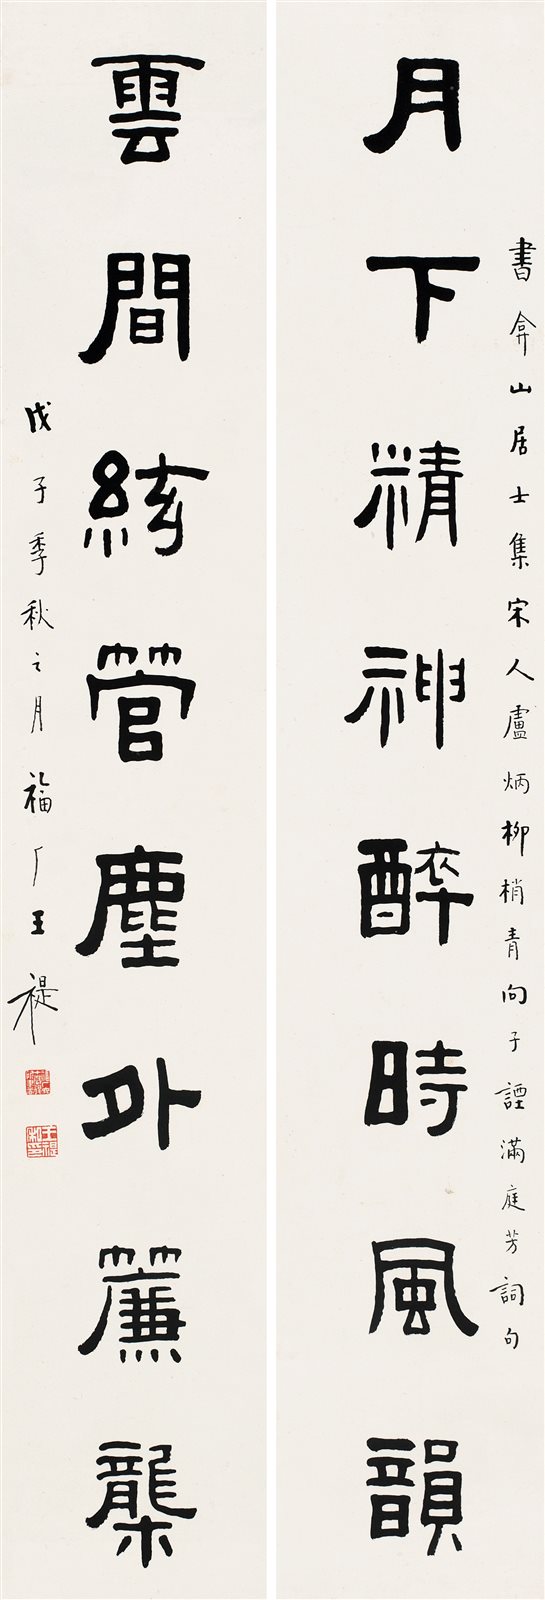 書弇山居士集宋人盧炳柳梢青向子諲滿庭芳詞句
月下精神醉時風韻
雲間絃管塵外簾櫳
戊子季秋之月福厂王禔